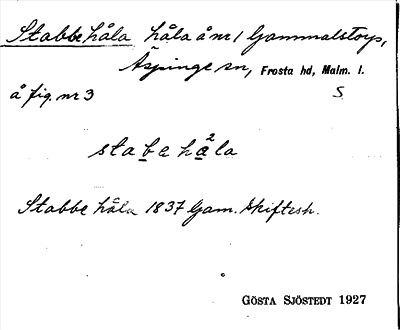 Stabbehåla håla å nr 1 Gammalstorp,
Äspinge sn, Frosta hd, Malm. l.
å fig. nr 3 S
stabe hå²la
Stabbe håla 1837 Gam. Skiftesh.
GÖSTA SJÖSTEDT 1927